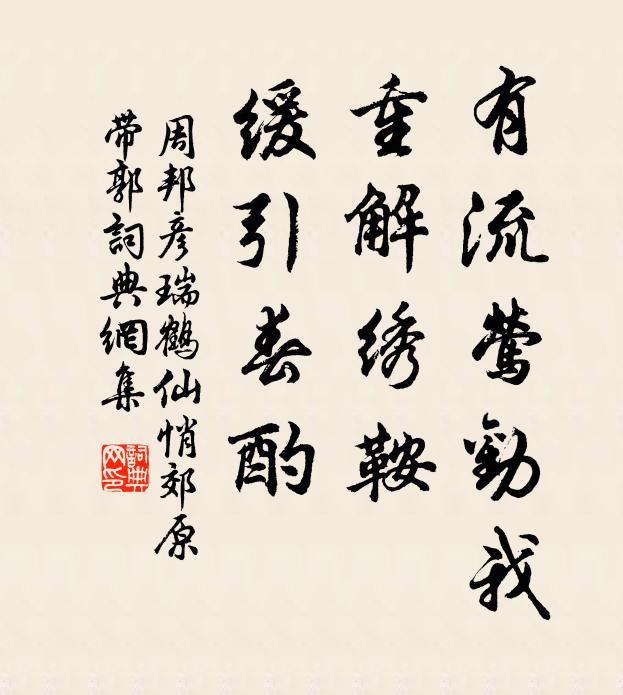 有流莺勸我
重解绣鞍
缓引春酌
周邦彦瑞鶴仙悄郊原
带郭詞典網集
詞典
网印